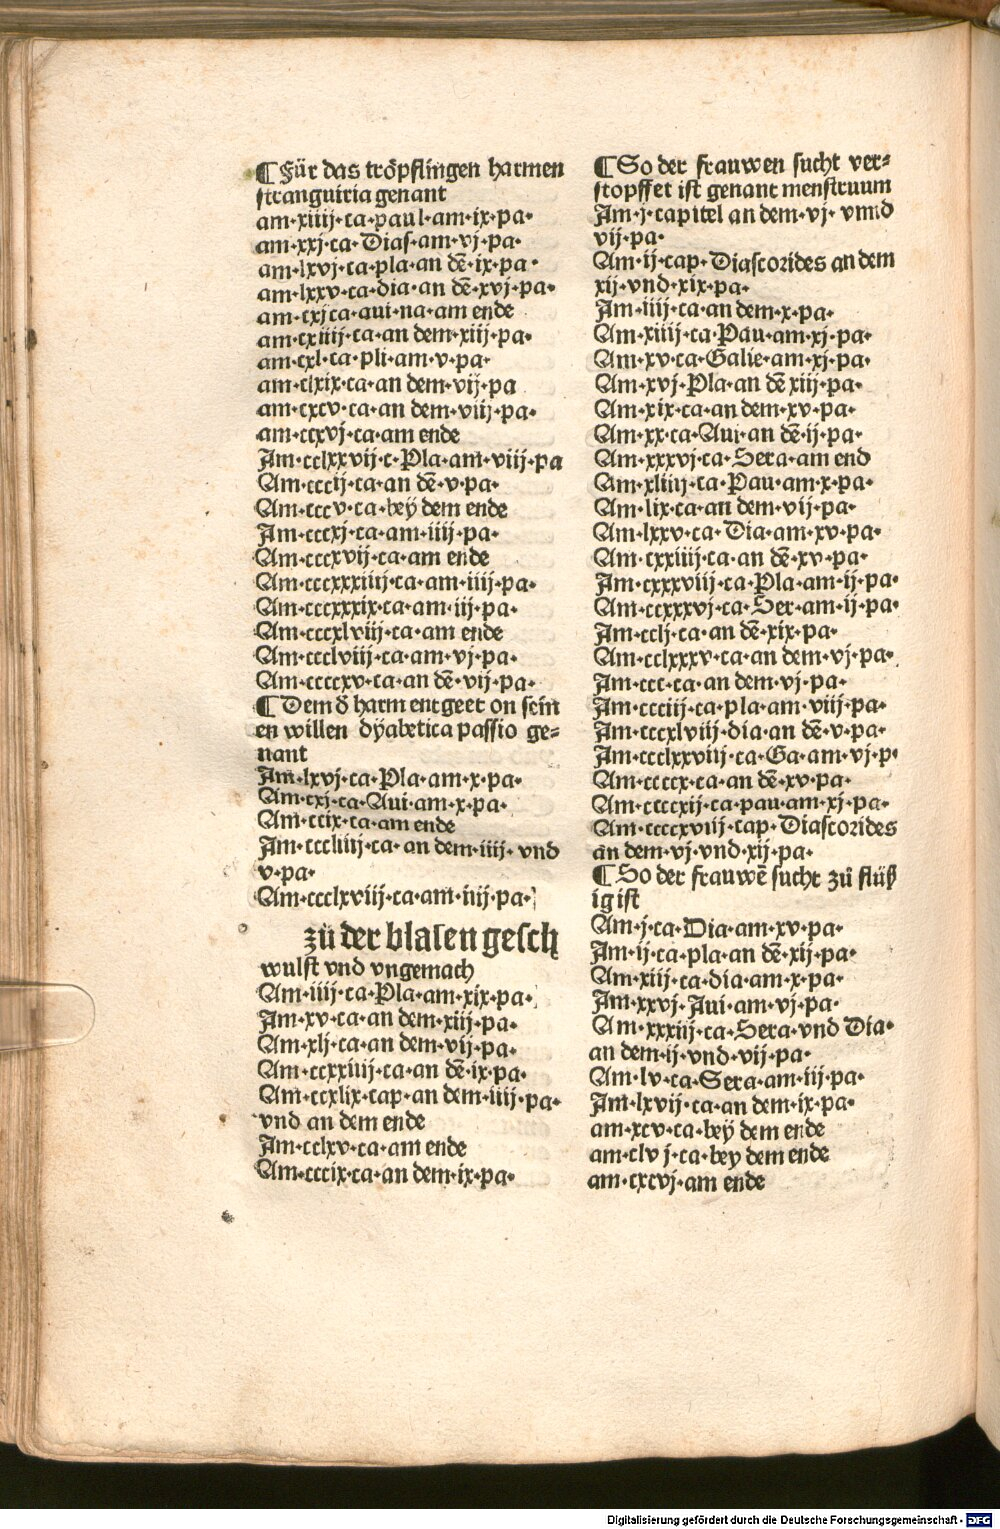 ¶ Für das tröpflingen harmen
stranguiria genant
am·xiiij·ca·paul·am·ix·pa·
am·xxj·ca·Dias·am·vj·pa·
am·lxvj·ca·pla·an dē·ix·pa·
am·lxxv·ca·dia·an dē·xvj·pa·
am·cxj ca·aui·na·am ende
am·cxiiij·ca·an dem·xiij·pa·
am·cxl·ca·pli·am·v·pa·
am·clxix·ca·an dem·vij·pa
am·cxcv·ca·an dem·viij·pa·
am·ccxvj·ca·am ende
Im·cclxxvij·c·Pla·am·viij·pa
Am·cccij·ca·an dē·v·pa·
Am·cccv·ca·beÿ dem ende
Im·cccxj·ca·am·iiij·pa·
Am·cccxvij·ca·am ende
Am·cccxxxiiij·ca·am·iiij·pa·
Am·cccxxxix·ca·am·iij·pa·
Am·cccxlviij·ca·am ende
Am·ccclviij·ca·am·vj·pa·
Am·ccccxv·ca·an dē·vij·pa·
¶ Dem d̄ harm entgeet on sein
en willen dÿabetica passio ge=
nant
Im·lxvj·ca·Pla·am·x·pa·
Am·cxj·ca·Aui·am·x·pa·
Am·ccix·ca·am ende
Im·cccliiij·ca·an dem·iiij·vnd
v·pa·
Am·ccclxviij·ca·am·iiij·pa·
zü der blasen gesch
wulst vnd vngemach
Am·iiij·ca·Pla·am·xix·pa·
Im·xv·ca·an dem·xiij·pa·
Am·xlj·ca·an dem·vij·pa·
Am·ccxxiiij·ca·an dē·ix·pa·
Am·ccxlix·cap·an dem·iiij·pa·
vnd an dem ende
Im·cclxv·ca·am ende
Am·cccix·ca·an dem·ix·pa·
¶ So der frauwen sucht ver=
stopffet ist genant menstruum
Im·j·capitel an dem·vj·vnnd
vij·pa·
Am·ij·cap·Diascorides an dem
xij·vnd·xix·pa·
Im·iiij·ca·an dem·x·pa·
Am·xiiij·ca·Pau·am·xj·pa·
Am·xv·ca·Galie·am·xj·pa·
Am·xvj·Pla·an dē xiij·pa·
Am·xix·ca·an dem·xv·pa·
Am·xx·ca·Aui·an dē·ij·pa·
Am·xxxvj·ca·Sera·am end
Am·xliiij·ca·Pau·am·x·pa·
Am·lix·ca·an dem·vij·pa·
Am·lxxv·ca·Dia·am·xv·pa·
Am·cxxiiij·ca·an dē·xv·pa·
Im·cxxxviij·ca·Pla·am·ij·pa·
Am·ccxxxvj·ca·Ser·am·ij·pa·
Im·cclj·ca·an dē·xix·pa·
Am·cclxxxv·ca·an dem·vj·pa·
Im·ccc·ca·an dem·vj·pa·
Im·ccciij·ca·pla·am·viij·pa·
Im·cccxlviij·dia·an dē·v·pa·
Im·ccclxxviij·ca·Ga·am·vj·p·
Am·ccccx·ca·an dē·xv·pa·
Am·ccccxij·ca·pau·am·xj·pa·
Am·ccccxviij·cap·Diascorides
an dem·vj·vnd·xij·pa·
¶ So der frauwē sucht zů flüß
ig ist
Am·j·ca·Dia·am·xv·pa·
Im·ij·ca·pla·an dē·xij·pa·
Am·xiij·ca·dia·am·x·pa·
Im·xxvj·Aui·am·vj·pa·
Am·xxxiij·ca·Sera·vnd Dia·
an dem·ij·vnd·vij·pa·
Am·lv·ca·Sera·am·iij·pa·
Im·lxvij·ca·an dem·ix·pa·
am·xcv·ca·beÿ dem ende
am·clvj·ca·bey dem ende
am·cxcvj·am ende
Digitalisierung gefördert durch die Deutsche Forschungsgemeinschaft - DFG